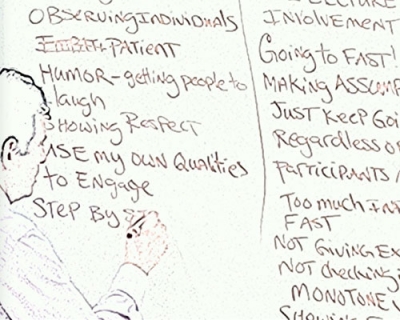 OBSERVING INDIVIDUALS
PATIENT
HUMOR - getting people to
laugh
SHOWING RESPECT
USE my OWN Qualities
to Engage
STEP By
LECTURE
INVOLVEMENT
Going to FAST!
MAKING ASSUMP
JUST KEEP Goi
Regardless of
PARTICIPANTS
Too much
FAST
NOT GIVING EX
NOT checking
MONOTONE
SHOWING